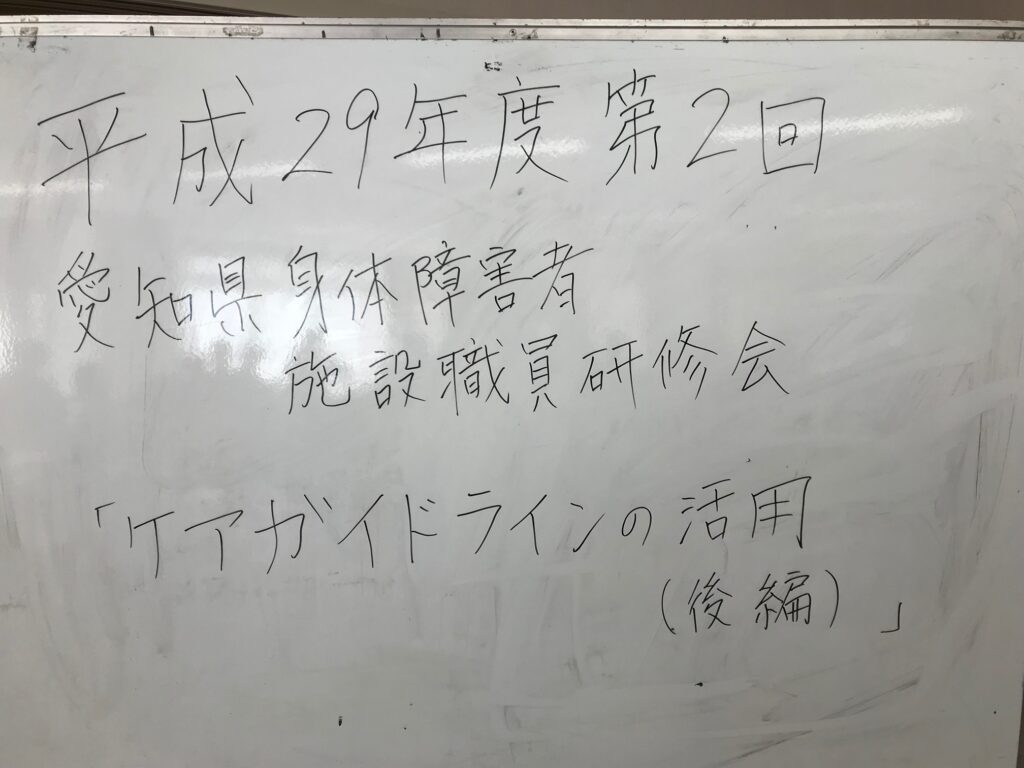 平成29年度第2回
愛知県身体障害者
施設職員研修会
「ケアガイドラインの活用
(後編)」